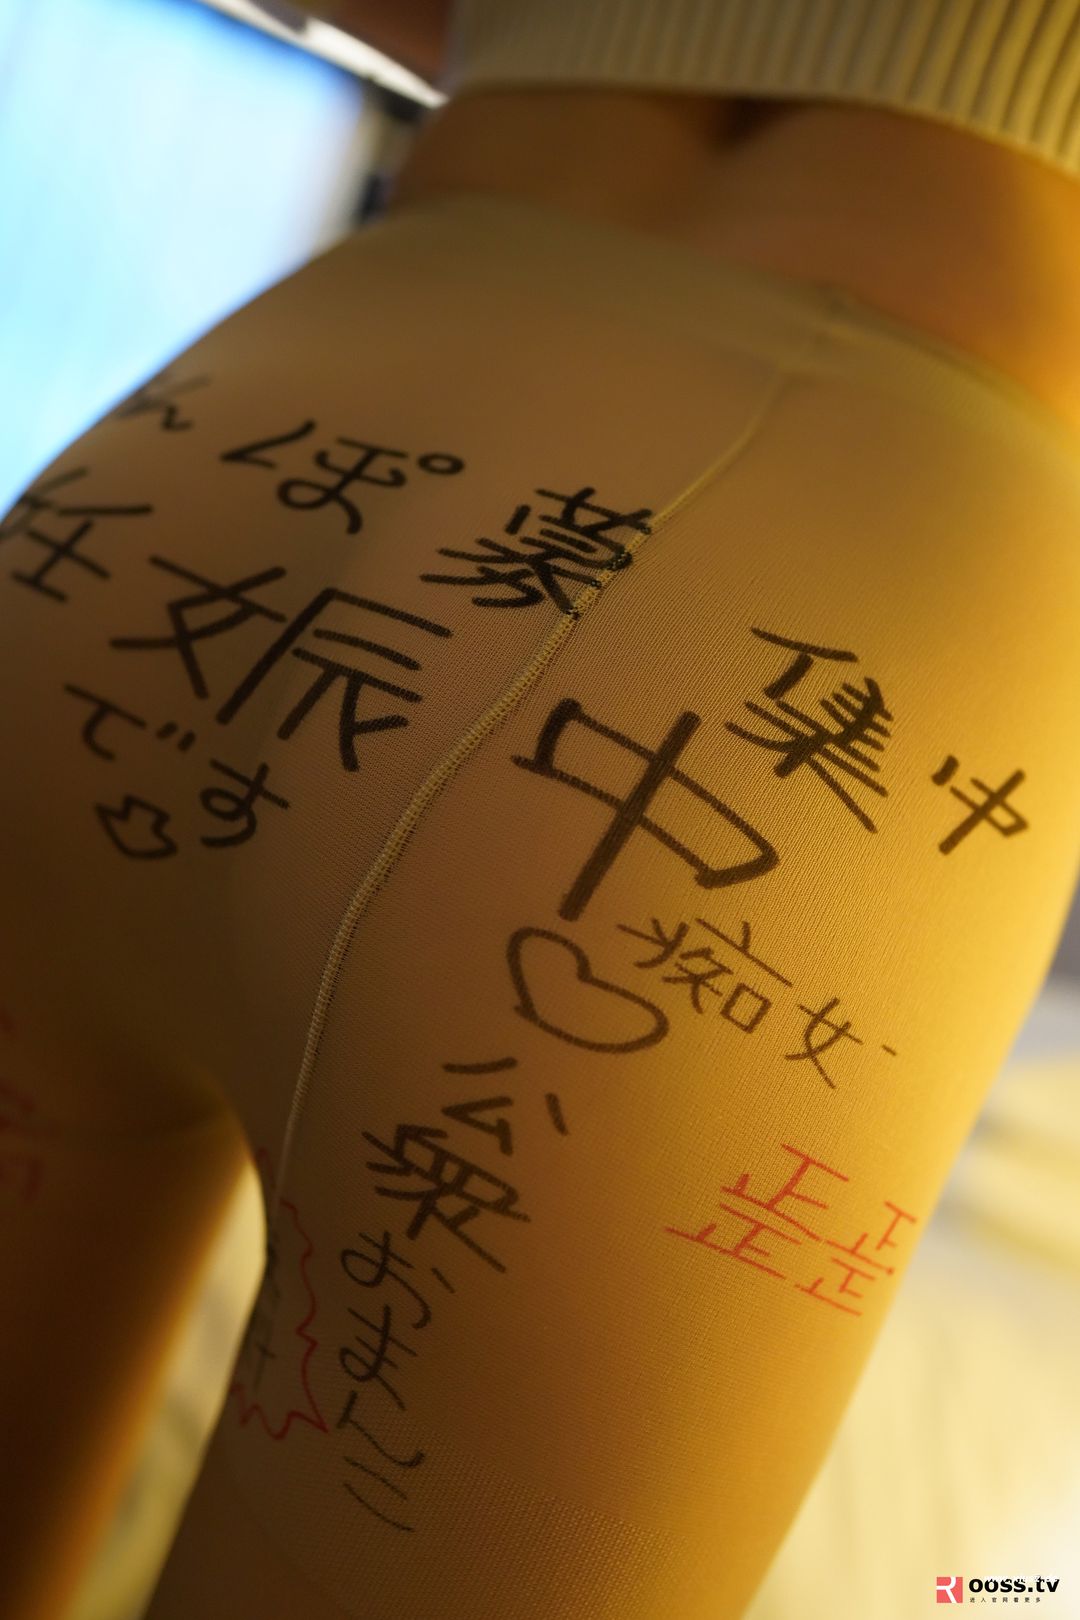 ん
ちんぽ
募集中
妊娠中
です
痴女
公衆
おまんこ
正正
正正
ROOSS.tv
进入官网看更多